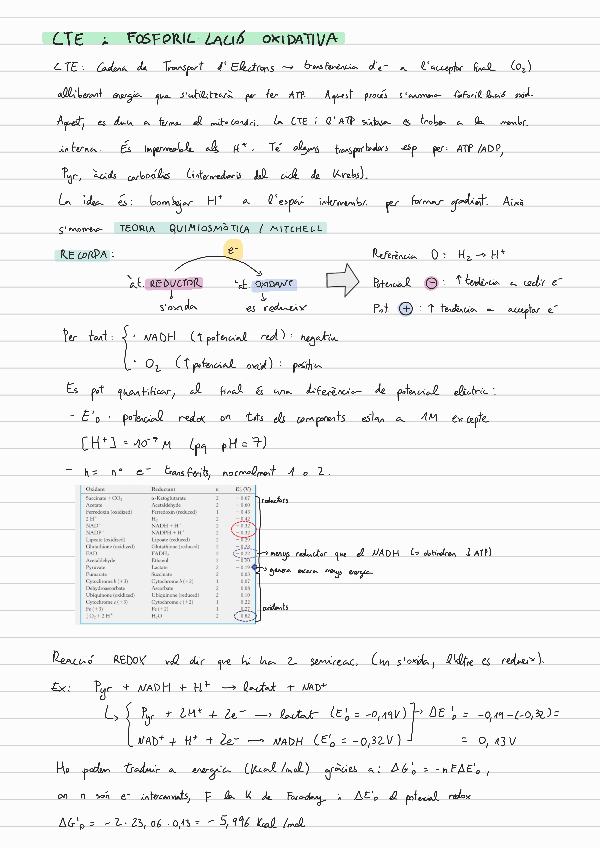 CTE i FOSFORIL·LACIÓ OXIDATIVA
CTE: Cadena de Transport d'Electrons → transferència d'e⁻ a l'acceptor final (O₂)
alliberant energia que s'utilitzarà per fer ATP. Aquest procés s'anomena fosforilació oxid.
Aquest, es duu a terme al mitocondri. La CTE i l'ATP sintasa es troben a la membr.
interna. És impermeable als H⁺. Té alguns transportadors esp per: ATP/ADP,
Pyr, àcids carboxílics (intermediaris del cicle de Krebs).
La idea és: bombejar H⁺ a l'espai intermembr. per formar gradient. Això
s'anomena TEORIA QUIMIOSMÒTICA / MITCHELL
RECORDA:
e⁻
àt. REDUCTOR
àt. OXIDANT
s'oxida
es redueix
Referència 0: H₂ → H⁺
Potencial ⊖: ↑ tendència a cedir e⁻
Pot ⊕: ↑ tendència a acceptar e⁻
Per tant: { · NADH (↑ potencial red): negatiu
· O₂ (↑ potencial oxid): positiu
Es pot quantificar, al final és una diferència de potencial elèctric:
- E'₀: potencial redox on tots els components estan a 1M excepte
[H⁺] = 10⁻⁷ M (pq pH = 7)
- n = nº e⁻ transferits, normalment 1 o 2.
Oxidant Reductant n E'₀ (V)
Succinate + CO₂ α-Ketoglutarate 2 −0.67
Acetate Acetaldehyde 2 −0.60
Ferredoxin (oxidized) Ferredoxin (reduced) 1 −0.43
2 H⁺ H₂ 2 −0.42
NAD⁺ NADH + H⁺ 2 −0.32
NADP⁺ NADPH + H⁺ 2 −0.32
Lipoate (oxidized) Lipoate (reduced) 2 −0.29
Glutathione (oxidized) Glutathione (reduced) 2 −0.23
FAD FADH₂ 2 −0.22
Acetaldehyde Ethanol 2 −0.20
Pyruvate Lactate 2 −0.19
Fumarate Succinate 2 0.03
Cytochrome b (+3) Cytochrome b (+2) 1 0.07
Dehydroascorbate Ascorbate 2 0.08
Ubiquinone (oxidized) Ubiquinone (reduced) 2 0.10
Cytochrome c (+3) Cytochrome c (+2) 1 0.22
Fe (+3) Fe (+2) 1 0.77
½ O₂ + 2 H⁺ H₂O 2 0.82
reductors
→ menys reductor que el NADH (→ obtindrem ↓ ATP)
→ genera encara menys energia
oxidants
Reacció REDOX vol dir que hi ha 2 semireac. (un s'oxida, l'altre es redueix).
Ex: Pyr + NADH + H⁺ → lactat + NAD⁺
Pyr + 2H⁺ + 2e⁻ → lactat (E'₀ = -0,19V) → ΔE'₀ = -0,19-(-0,32) =
NAD⁺ + H⁺ + 2e⁻ → NADH (E'₀ = -0,32V) = 0,13V
Ho podem traduir a energia (Kcal/mol) gràcies a: ΔG'₀ = -nFΔE'₀,
on n són e⁻ intercanviats, F la K de Faraday i ΔE'₀ el potencial redox
ΔG'₀ = -2·23,06·0,13 = -5,996 Kcal/mol